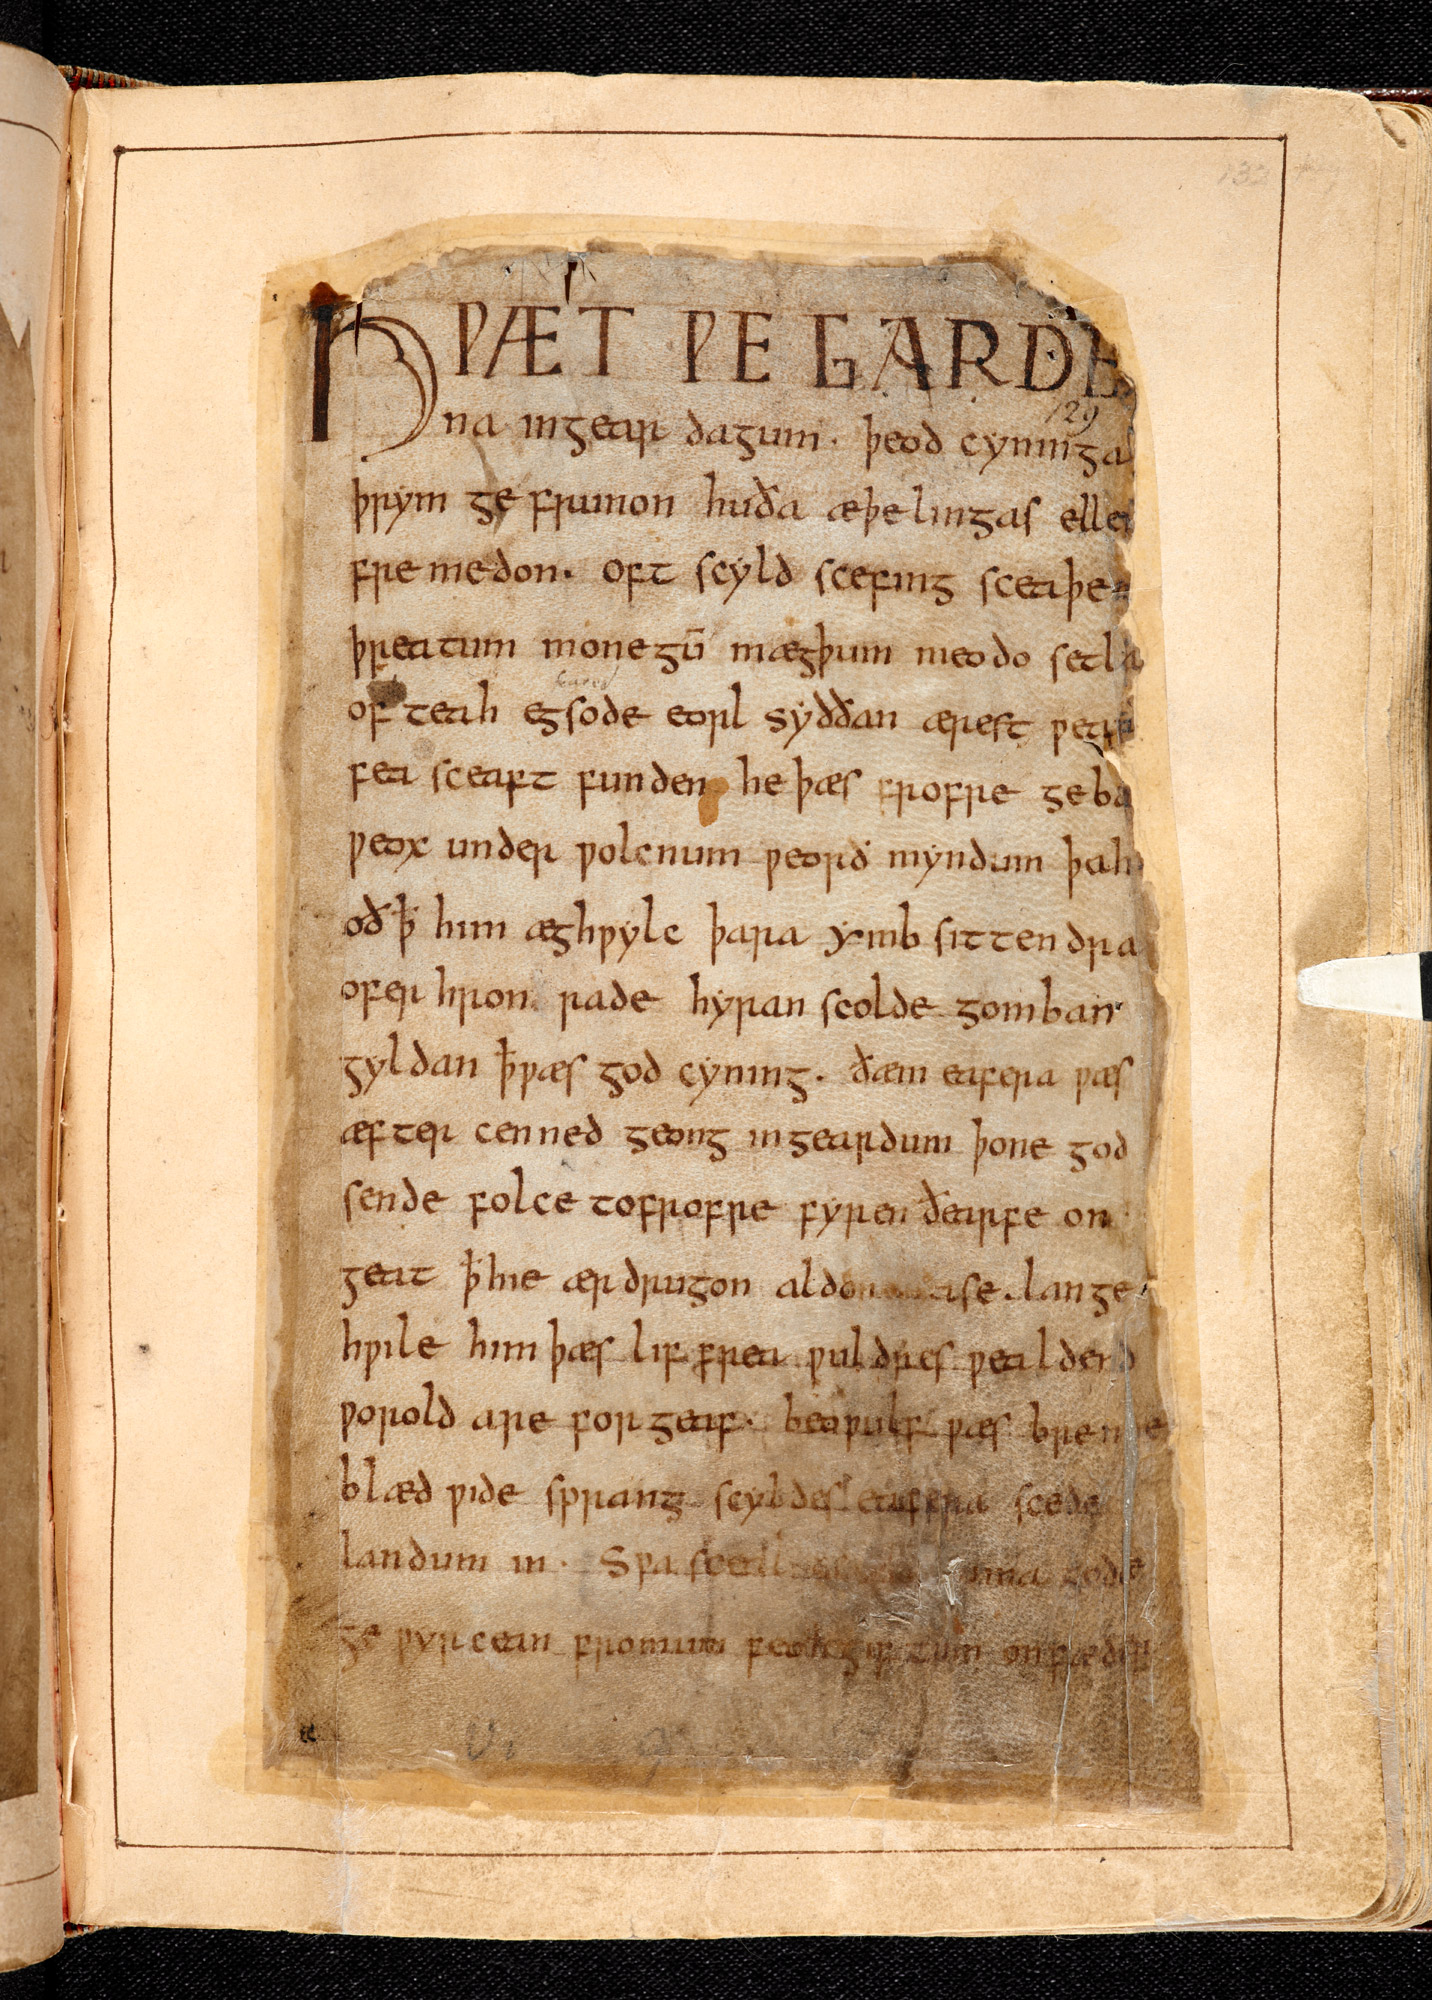 HǷÆT ǷE GARDE
129
na ingear dagum. þeod cyninga
þrym ge frunon huða æþelingas ellen
fremedon. oft scyld scefing sceaþe
þreatum monegū mægþum meodo setla
ofteah egsode eorl syððan ærest ƿear
fea sceaft funden he þæs frofre geba
ƿeox under ƿolcnum ƿeorð myndum þah
oð ꝥ him æghƿylc þara ymb sittendra
ofer hron rade hyran scolde gomban
gyldan ꝥ ƿæs god cyning. ðæm eafera ƿæs
æfter cenned geong ingeardum þone god
sende folce tofrofre fyren ðearfe on
geat ꝥ hie ær drugon aldor ase. lange
hƿile him þæs lif frea ƿuldres ƿealdend
ƿorold are for geaf. beaƿulf ƿæs breme
blæd ƿide sprang scyldes eafera scede
landum in. Sƿa sceal uma gode
ge ƿyrcean fromum feohgiftum on fæder